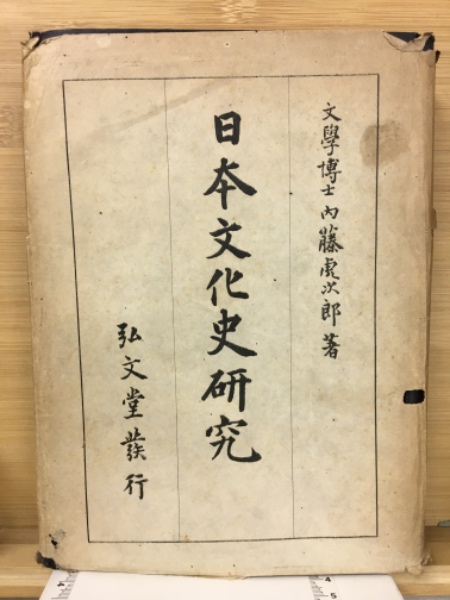 文學博士 內藤虎次郎著
日本文化史研究
弘文堂發行
4
4 5